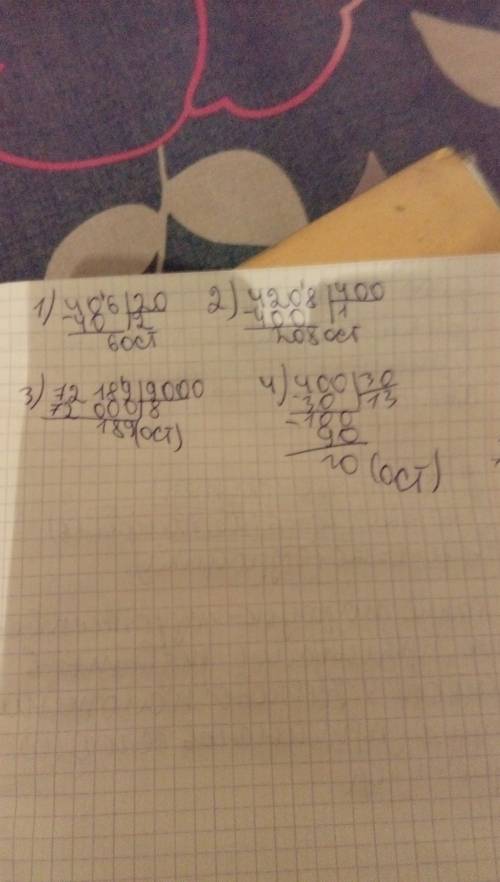 1) 40'6 |20
- 40 |2
6 ост
2) 4208' |400
- 400 |1
208 ост
3) 72 189 |9000
72 000 |8
189(ост)
4) 400 |30
- 30 |13
- 100
90
10 (ост)